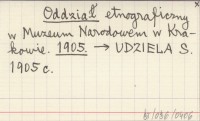 Oddział etnograficzny
w Muzeum Narodowem w Kra-
kowie. 1905. → UDZIELA S.
1905 c.